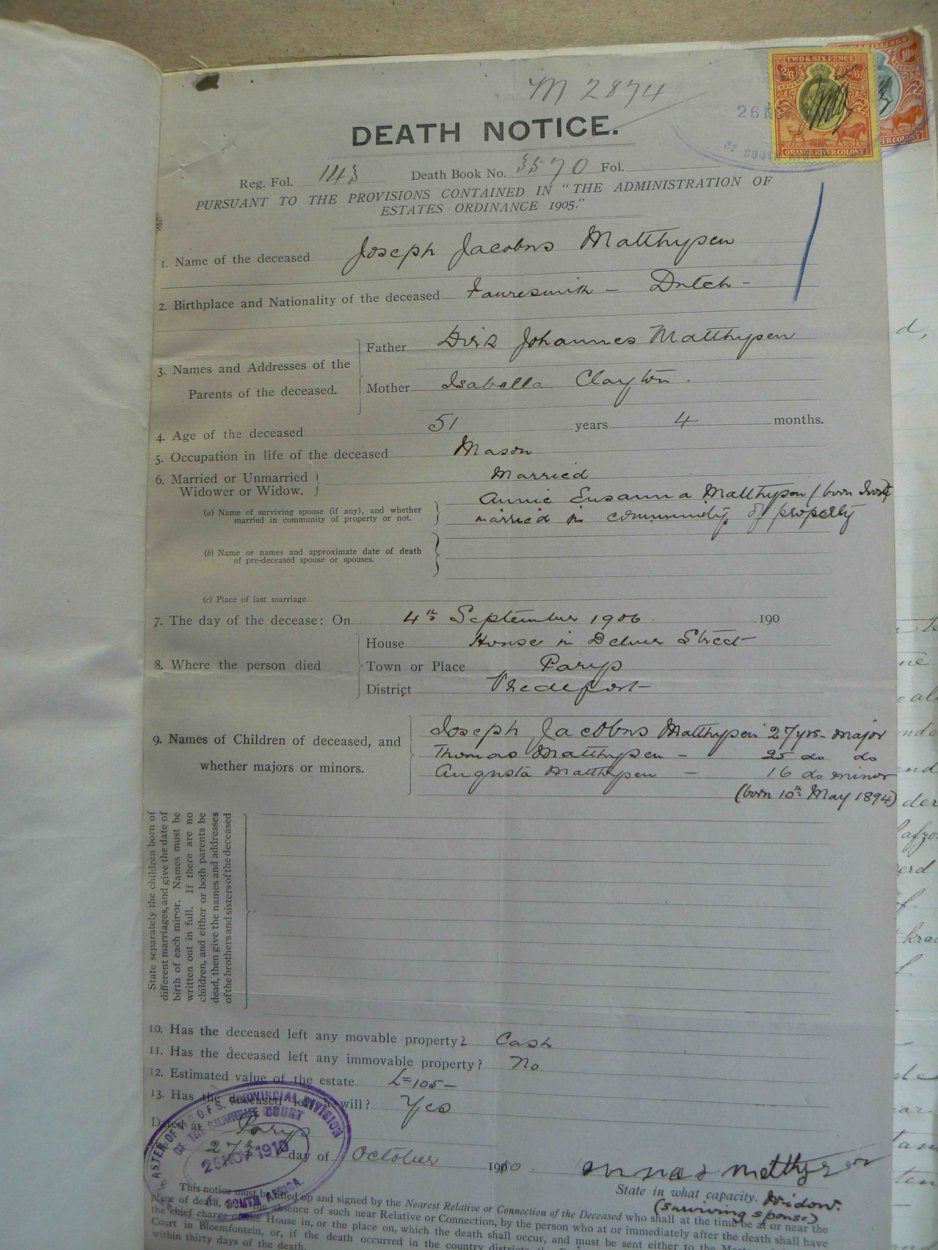 M 2874
26 N
TWO & SIX PENCE
2/6
ORANGE RIVER COLONY
10/
DEATH NOTICE.
Reg. Fol. 143 Death Book No. 3570 Fol.
PURSUANT TO THE PROVISIONS CONTAINED IN "THE ADMINISTRATION OF
ESTATES ORDINANCE 1905."
1. Name of the deceased Joseph Jacobus Matthysen
2. Birthplace and Nationality of the deceased Fauresmith - Dutch -
3. Names and Addresses of the Parents of the deceased.
Father Dirk Johannes Matthysen
Mother Isabella Clayton.
4. Age of the deceased 51 years 4 months.
5. Occupation in life of the deceased Mason
6. Married or Unmarried Married
Widower or Widow.
(a) Name of surviving spouse (if any), and whether Annie Susanna Matthysen (born
married in community of property or not. married in community of property
(b) Name or names and approximate date of death
of pre-deceased spouse or spouses.
(c) Place of last marriage
7. The day of the decease: On 4th September 1906 190
8. Where the person died
House House in Delver Street
Town or Place Parys
District Vredefort
9. Names of Children of deceased, and
whether majors or minors.
Joseph Jacobus Matthysen 27 yrs - major
Thomas Matthysen - 25 do do
Augusta Matthysen - 16 do minor
(born 10th May 1894)
State separately the children born of
different marriages, and give the date of
birth of each minor. Names must be
written out in full. If there are no
children, and either or both parents be
dead, then give the names and addresses
of the brothers and sisters of the deceased
10. Has the deceased left any movable property? Cash
11. Has the deceased left any immovable property? No
12. Estimated value of the estate £105-
13. Has the deceased left a will? Yes
Dated at Parys
27th day of October 1910.
MASTER OF THE O.F.S. PROVINCIAL DIVISION
OF THE SUPREME COURT
25 NOV 1910
OF SOUTH AFRICA
Matthysen
State in what capacity. Widow.
(surviving spouse)
This notice must be filled up and signed by the Nearest Relative or Connection of the Deceased who shall at the time be at or near the
place of death, or in the absence of such near Relative or Connection, by the person who at or immediately after the death shall have
the chief charge of the House in, or the place on, which the death shall occur, and must be sent either to the
Court in Bloemfontein, or, if the death occurred in the country districts,
within thirty days of the death.